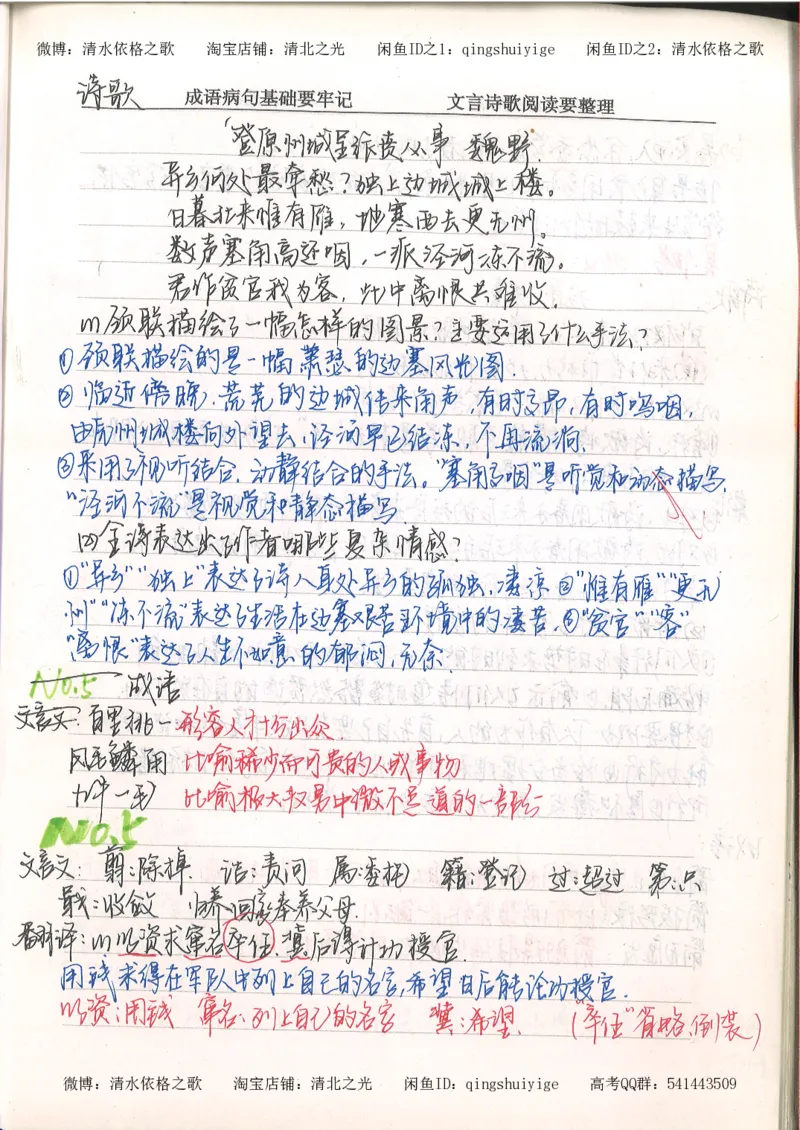 微博：清水依格之歌 淘宝店铺：清北之光 闲鱼ID之1：qingshuiyige 闲鱼ID之2：清水依格之歌
诗歌 成语病句基础要牢记 文言诗歌阅读要整理
登原州城呈张贲从事 魏野.
异乡何处最牵愁？独上边城城上楼。
日暮北来惟有雁，地寒西去更无州。
数声塞角高还咽，一派泾河冻不流。
君作贫官我为客，此中离恨共难收.
(1)颈联描绘了一幅怎样的图景？主要运用了什么手法？
①颈联描绘的是一幅萧瑟的边塞风光图.
②临近傍晚，荒芜的边城传来角声，有时高昂，有时呜咽，
由原州城楼向外望去，泾河早已结冻，不再流淌.
③采用了视听结合，动静结合的手法。“塞角高咽”是听觉和动态描写，
“泾河不流”是视觉和静态描写
(2)全诗表达出了作者哪些复杂情感？
①“异乡”“独上”表达了诗人身处异乡的孤独，凄凉②“惟有雁”“更无
州”“冻不流”表达了生活在边塞艰苦环境中的凄苦.③“贫官”“客”
“离恨”表达了人生不如意的郁闷，无奈.
No.5 成语
文言文：百里挑一 形容人才十分出众
凤毛麟角 比喻稀少而可贵的人或事物
九牛一毛 比喻极大数量中微不足道的一部分
No.5
文言文：翦：除掉. 诘：责问 属：委托 籍：登记 过：超过 第：只
戢：收敛 归养：回家奉养父母.
翻译：(1)以资求寘名卒伍，冀后得计功授官.
用钱求得在军队中列上自己的名字，希望日后能论功授官.
以资：用钱 寘名：列上自己的名字 冀：希望. (“卒伍”省略、倒装)
微博：清水依格之歌 淘宝店铺：清北之光 闲鱼ID：qingshuiyige 高考QQ群：541443509